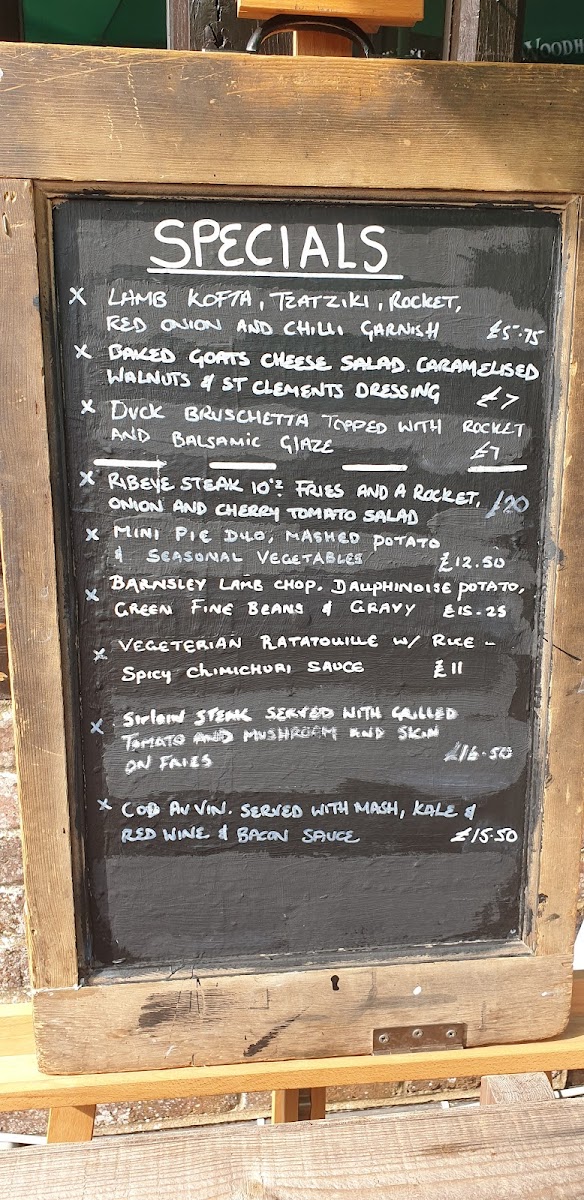 WOODH
SPECIALS
X LAMB KOFTA, TZATZIKI, ROCKET,
RED ONION AND CHILLI GARNISH £5.75
X BAKED GOATS CHEESE SALAD. CARAMELISED
WALNUTS & ST CLEMENTS DRESSING £7
X DUCK BRUSCHETTA TOPPED WITH ROCKET
AND BALSAMIC GLAZE £7
X RIBEYE STEAK 10oz. FRIES AND A ROCKET, £20
ONION AND CHERRY TOMATO SALAD
X MINI PIE DUO, MASHED POTATO
& SEASONAL VEGETABLES £12.50
X BARNSLEY LAMB CHOP. DAUPHINOISE POTATO,
GREEN FINE BEANS & GRAVY £15.25
X VEGETERIAN RATATOUILLE W/ RICE -
SPICY CHIMICHURI SAUCE £11
X SIRLOIN STEAK SERVED WITH GRILLED
TOMATO AND MUSHROOM AND SKIN
ON FRIES £16.50
X COD AU VIN. SERVED WITH MASH, KALE &
RED WINE & BACON SAUCE £15.50